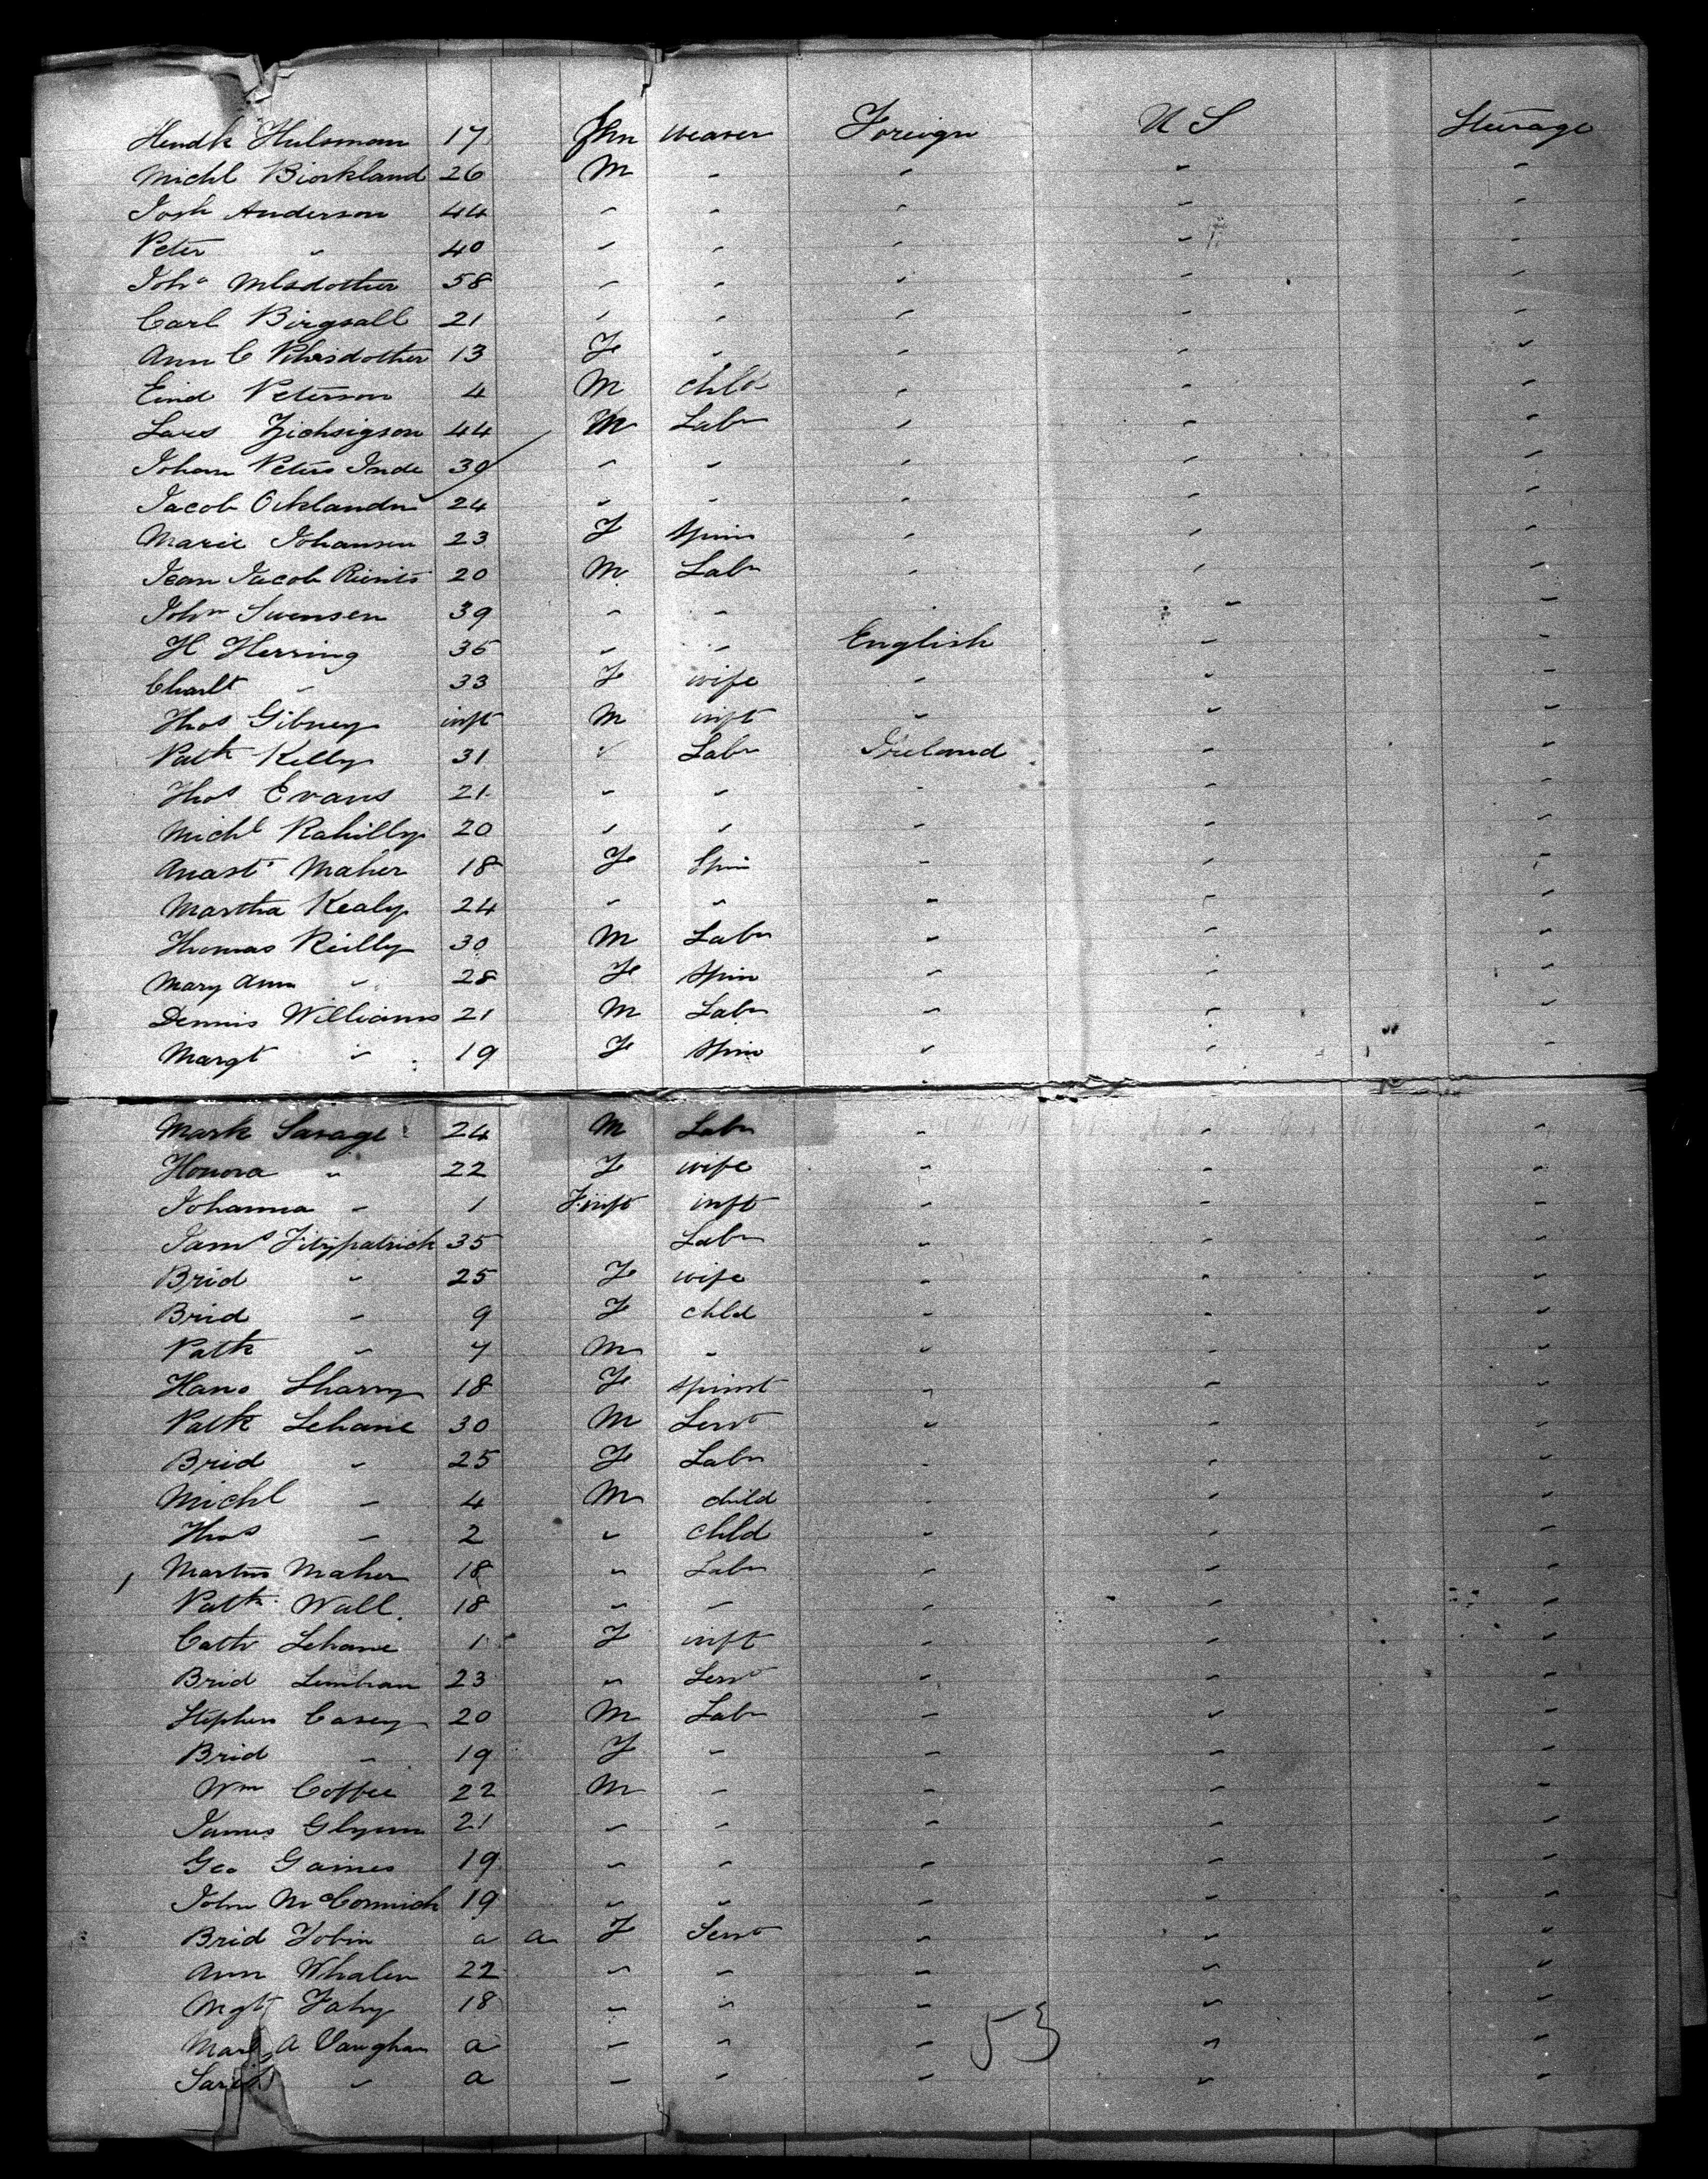 Hendk Hulsman 17 weaver Foreign U S Steerage
Michl Biorkland 26 M " " " "
Josh Anderson 44 " " " " "
Peter " 40 " " " " "
Joha 58 " " " " "
Carl Birgsall 21 " " " " "
Ann C 13 F " " " "
Peterson 4 M chld " " "
Lars 44 M Labr " " "
Johan Peter 39 " " " " "
Jacob 24 " " " " "
Marie Johansen 23 F Spin " " "
Jean Jacob 20 M Labr " " "
John Swensen 39 " " " " "
H Herring 35 " " English " "
Charlt " 33 F wife " " "
Thos Gibney inft M inft " " "
Patk Kelly 31 " Labr Ireland " "
Thos Evans 21 " " " " "
Michl Rahilly 20 " " " " "
Anast Maher 18 F Spin " " "
Martha Kealy 24 " " " " "
Thomas Reilly 30 M Labr " " "
Mary Ann " 28 F Spin " " "
Dennis Williams 21 M Labr " " "
Margt " 19 F Spin " " "
Mark Savage 24 M Labr " " "
Honora " 22 F wife " " "
Johanna " 1 F inft inft " " "
Jams Fitzpatrick 35 Labr " " "
Brid " 25 F wife " " "
Brid " 9 F chld " " "
Patk " 7 M " " " "
Hano Sharry 18 F spinst " " "
Patk Lehane 30 M Servt " " "
Brid " 25 F Labr " " "
Michl " 4 M child " " "
Thos " 2 " chld " " "
Martin Maher 18 " Labr " " "
Patk Wall 18 " " " " "
Cath Lehane 1 F inft " " "
Brid 23 " Servt " " "
Stephen Casey 20 M Labr " " "
Brid " 19 F " " " "
Wm Coffee 22 M " " " "
James Glynn 21 " " " " "
Geo Gaines 19 " " " " "
John McCormick 19 " " " " "
Brid Tobin a a F Servt " " "
Ann Whalen 22 " " " " "
Mgt Fahy 18 " " " " "
Mary A Vaughan a " " " " "
Sarah " a " " " " "
53